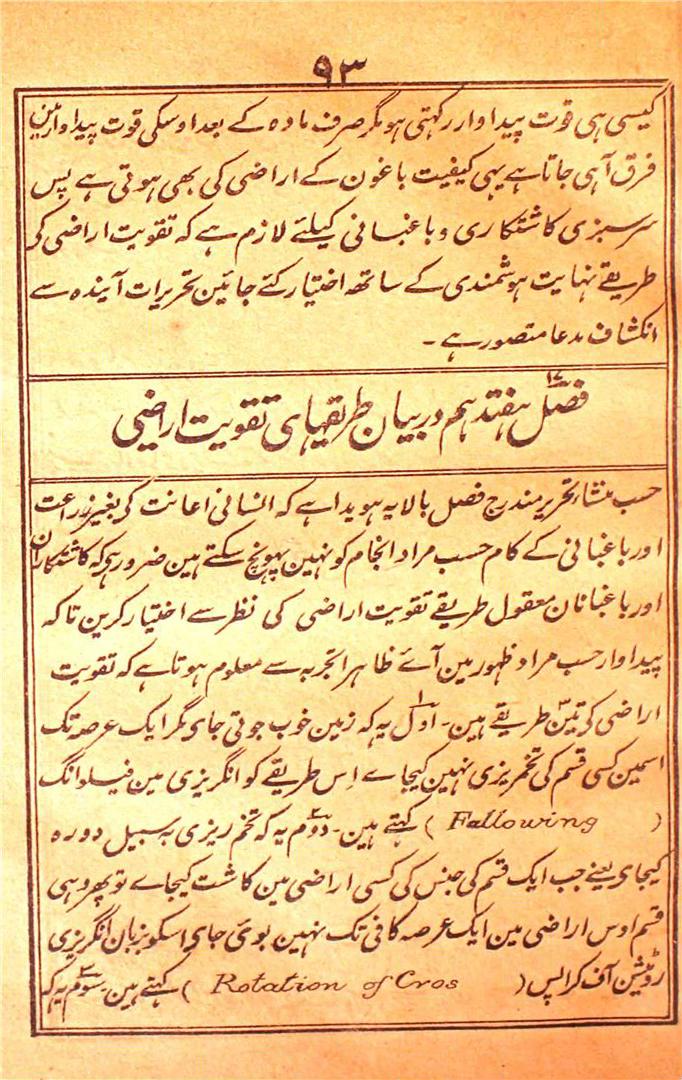 ۹۳
کیسی ہی قوت پیداوار رکہتی ہو مگر صرف مادہ کے بعد اوسکی قوت پیداوار مین
فرق آہی جاتا ہے یہی کیفیت باغون کے اراضی کی بھی ہوتی ہے پس
سرسبزی کاشتکاری و باغبانی کیلئے لازم ہے کہ تقویت اراضی کے
طریقے نہایت ہوشمندی کے ساتھ اختیار کئے جائین تحریرات آیندہ سے
انکشاف مدعا متصور ہے ۔
فصل ۱۷ ہفتدہم در بیان طریقہای تقویت اراضی
حسب منشاء تحریر مندرج فصل بالا یہ ہویدا ہے کہ انسانی اعانت کے بغیر زراعت
اور باغبانی کے کام حسب مراد انجام کو نہین پہونچ سکتے ہین ضرور ہے کہ کاشتکاران
اور باغبانان معقول طریقے تقویت اراضی کی نظر سے اختیار کرین تاکہ
پیداوار حسب مراد ظہور مین آئے ظاہرا تجربہ سے معلوم ہوتا ہے کہ تقویت
اراضی کے تین طریقے ہین ۔ اول یہ کہ زمین خوب جوتی جاے مگر ایک عرصہ تک
اسمین کسی قسم کی تخمریزی نہین کیجاے اِس طریقے کو انگریزی مین فیلوانگ
( Fallowing ) کہتے ہین ۔ دوم یہ کہ تخم ریزی بہ سبیل دورہ
کیجاے یعنے جب ایک قسم کی جنس کی کسی اراضی مین کاشت کیجاے تو پھر وہی
قسم اوس اراضی مین ایک عرصہ کافی تک نہین بوئی جاے اسکو بزبان انگریزی
روٹیشن آف کراپس ( Rotation of Cros ) کہتے ہین ۔ سوم یہ کہ